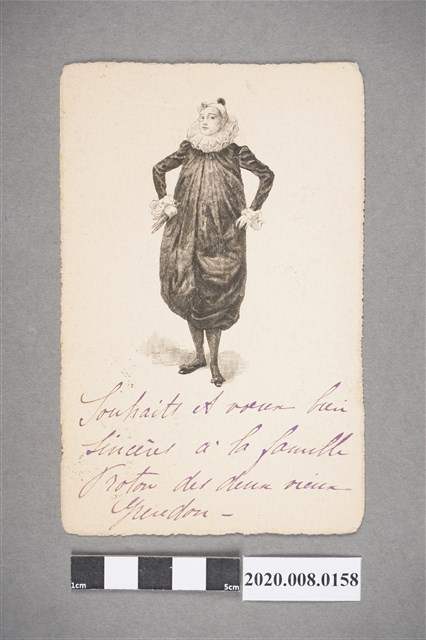 Souhaits et vœux bien
sincères à la famille
Proton des deux vieux
Gueudon –
1cm 5cm
2020.008.0158